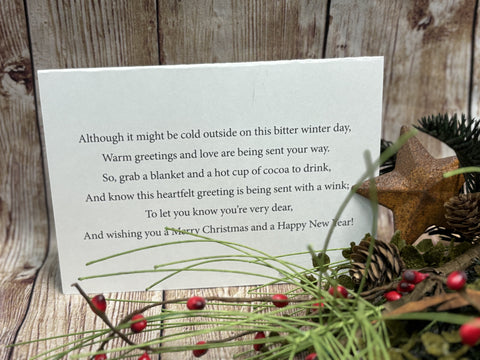 Although it might be cold outside on this bitter winter day,
Warm greetings and love are being sent your way.
So, grab a blanket and a hot cup of cocoa to drink,
And know this heartfelt greeting is being sent with a wink;
To let you know you're very dear,
And wishing you a Merry Christmas and a Happy New Year!